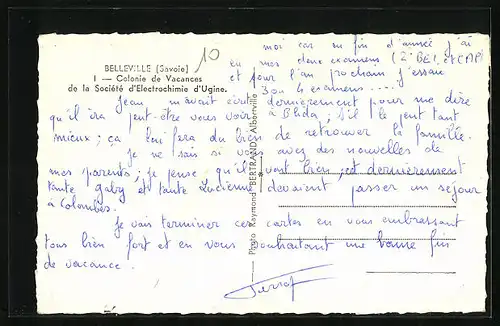 BELLEVILLE (Savoie)
I — Colonie de Vacances
de la Société d'Electrochimie d'Ugine.
10
moi car en fin d'année j'ai
eu mes deux examens (2° BEI et CAP)
et pour l'an prochain j'essaie
3 ou 4 examens....
Jean m'avait écrit dernièrement pour me dire
qu'il ira peut-être vous voir à Blida, s'il le peut tant
mieux ; ça lui fera du bien de retrouver la famille.
Je ne sais si vous avez des nouvelles de
mes parents ; je pense qu'ils vont bien et dernièrement
tante Gaby et tante Lucienne devaient passer un séjour
à Colombes.
Je vais terminer ces cartes en vous embrassant
tous bien fort et en vous souhaitant une bonne fin
de vacance.
Photo Raymond BERTRAND, Albertville